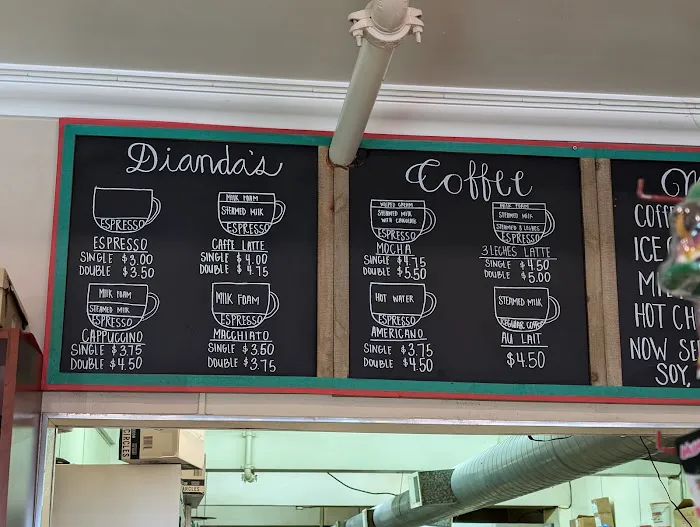 Dianda's
ESPRESSO
ESPRESSO
SINGLE $3.00
DOUBLE $3.50
MILK FOAM
STEAMED MILK
ESPRESSO
CAFFE LATTE
SINGLE $4.00
DOUBLE $4.75
MILK FOAM
STEAMED MILK
ESPRESSO
CAPPUCCINO
SINGLE $3.75
DOUBLE $4.50
MILK FOAM
ESPRESSO
MACCHIATO
SINGLE $3.50
DOUBLE $3.75
Coffee
WHIPPED CREAM
STEAMED MILK
WITH CHOCOLATE
ESPRESSO
MOCHA
SINGLE $4.75
DOUBLE $5.50
MILK FOAM
STEAMED MILK
STEAMED 3 LECHES
ESPRESSO
3 LECHES LATTE
SINGLE $4.50
DOUBLE $5.00
HOT WATER
ESPRESSO
AMERICANO
SINGLE $3.75
DOUBLE $4.50
STEAMED MILK
REGULAR COFFEE
AU LAIT
$4.50
HOT CH
NOW SE
SOY,